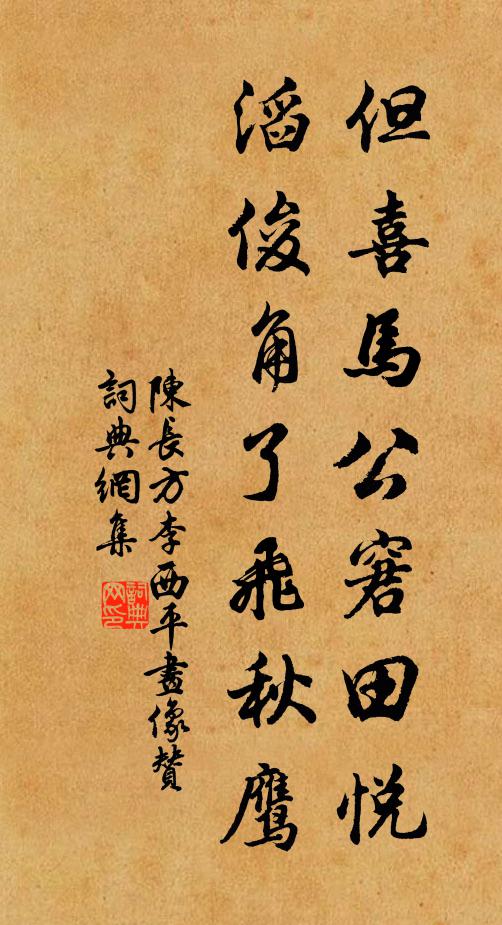 但喜馬公窘田悅
滔俊角了飛秋鷹
陳長方李西平畫像贊
詞典網集
詞典網印